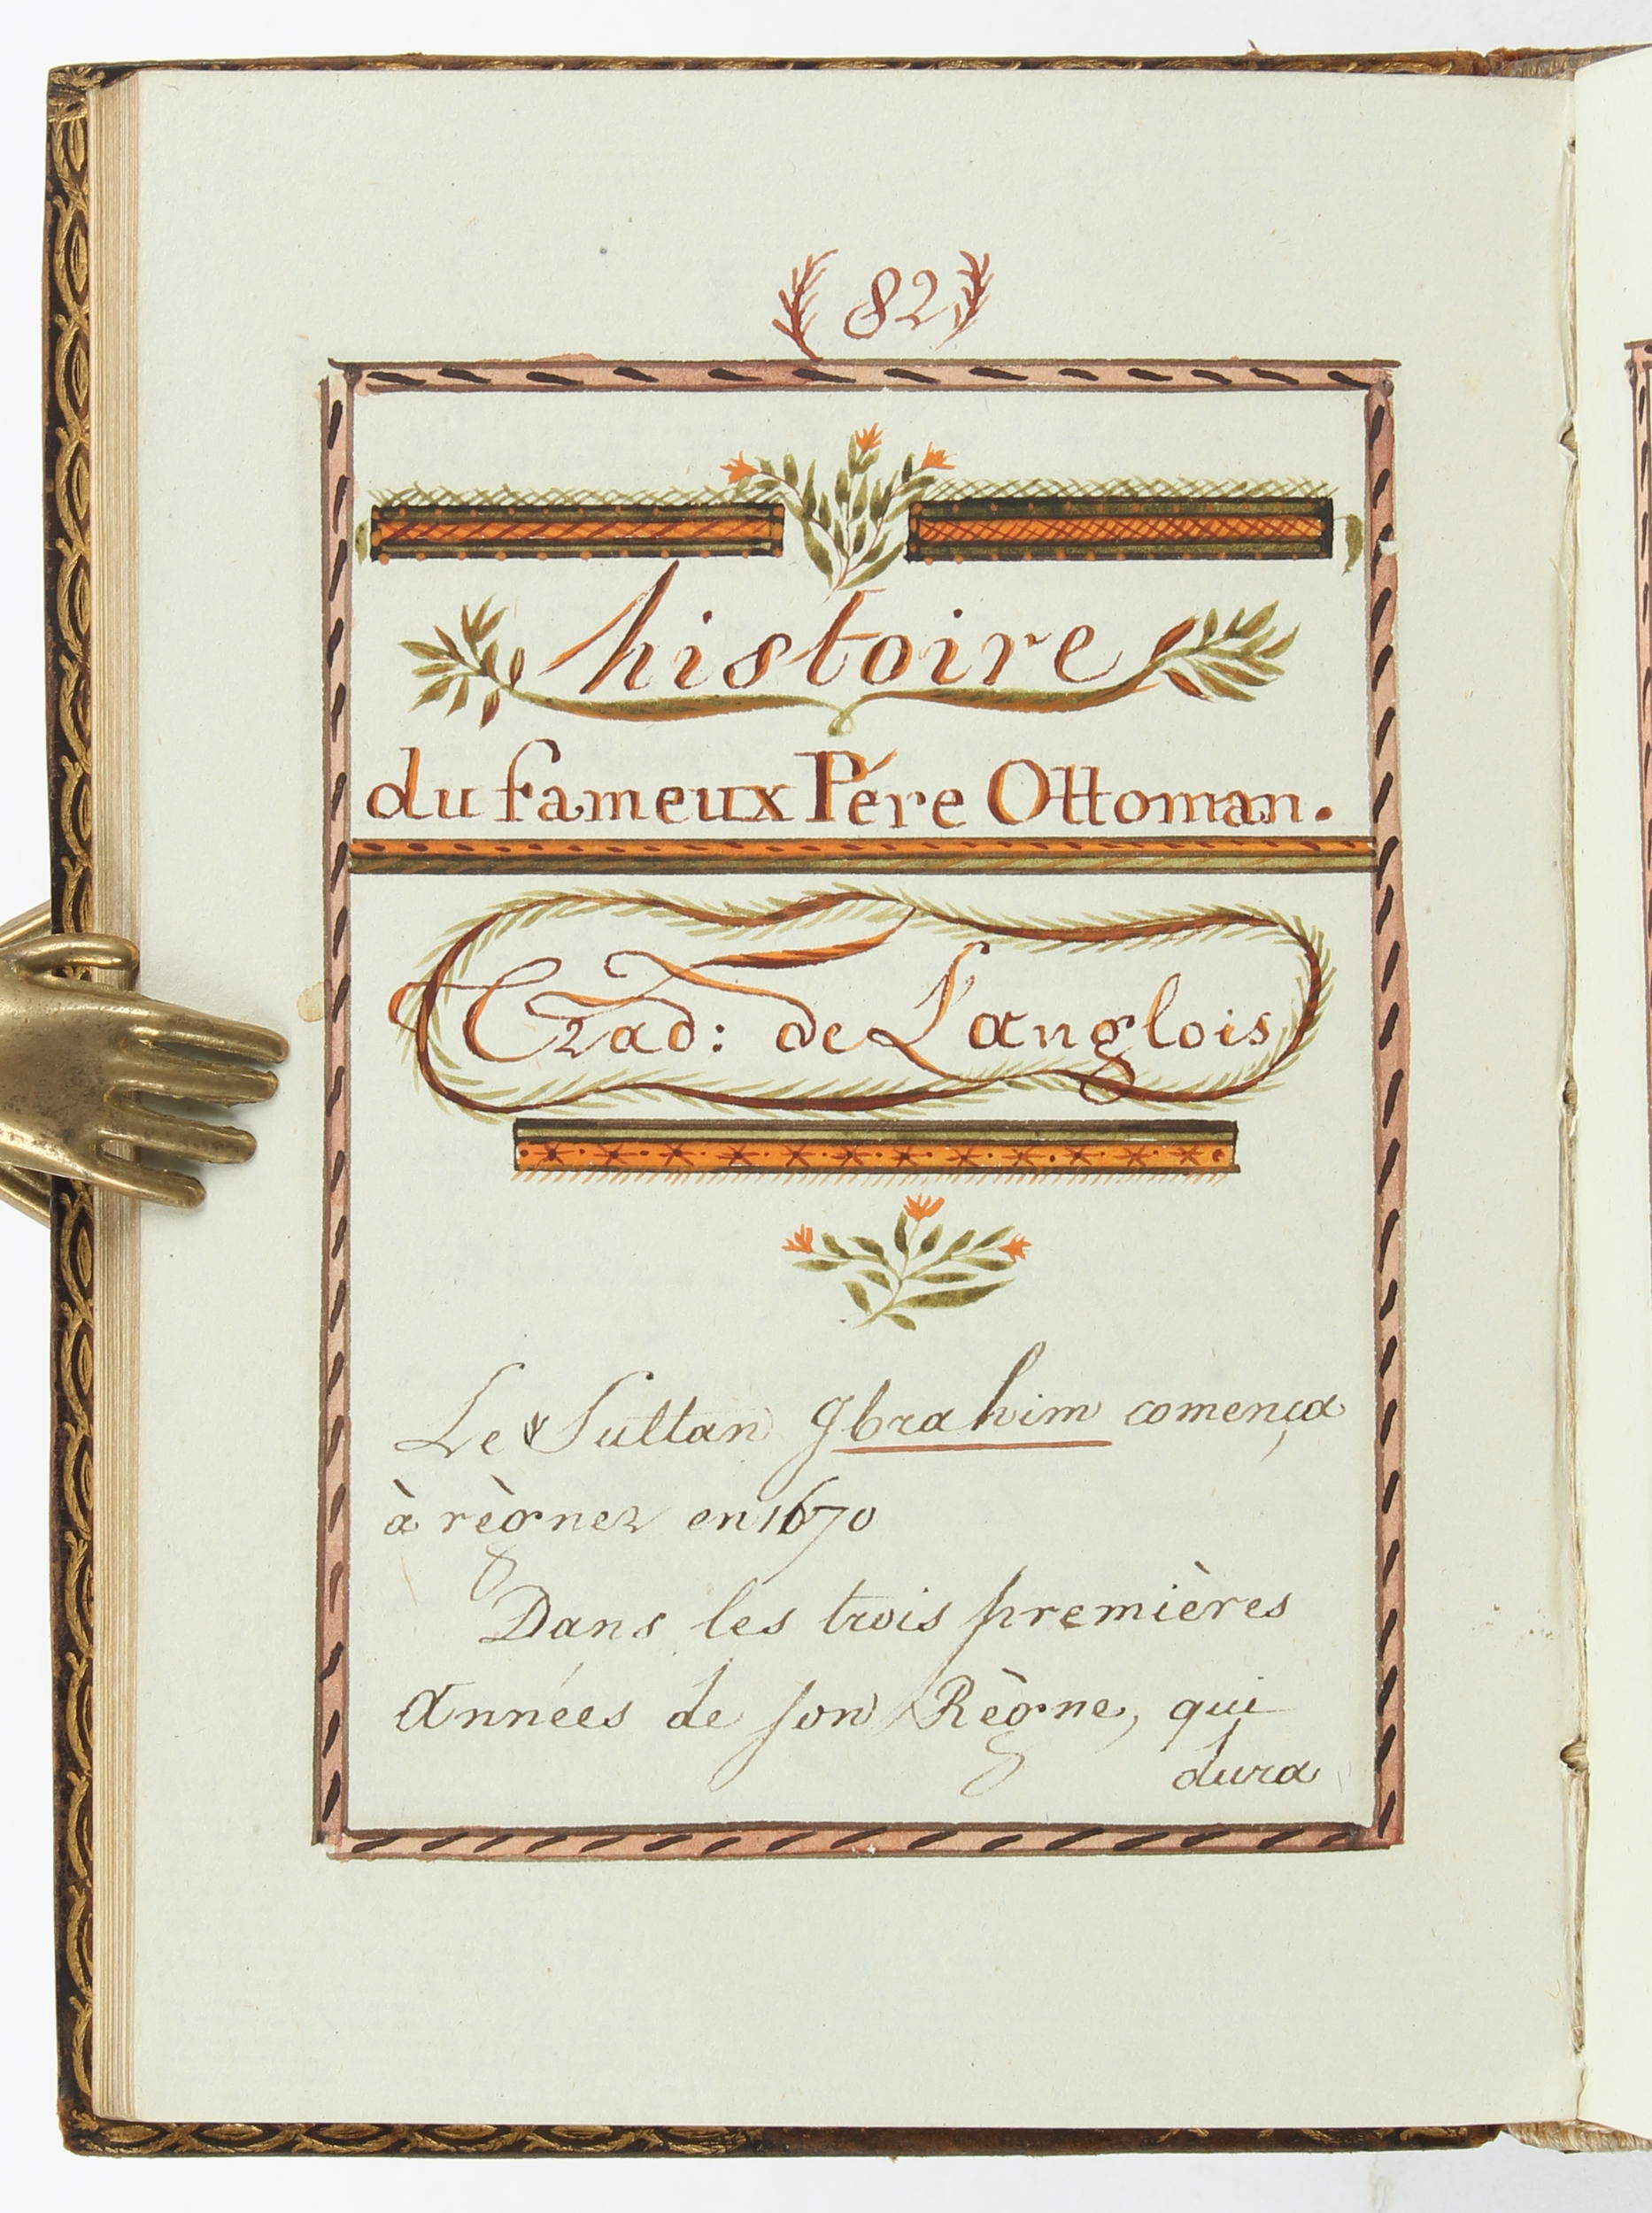 82
histoire
du fameux Pére Ottoman.
Trad: de L'anglois
Le Sultan Ibrahim comença
à règner en 1670
Dans les trois premières
Années de son Règne, qui
dura